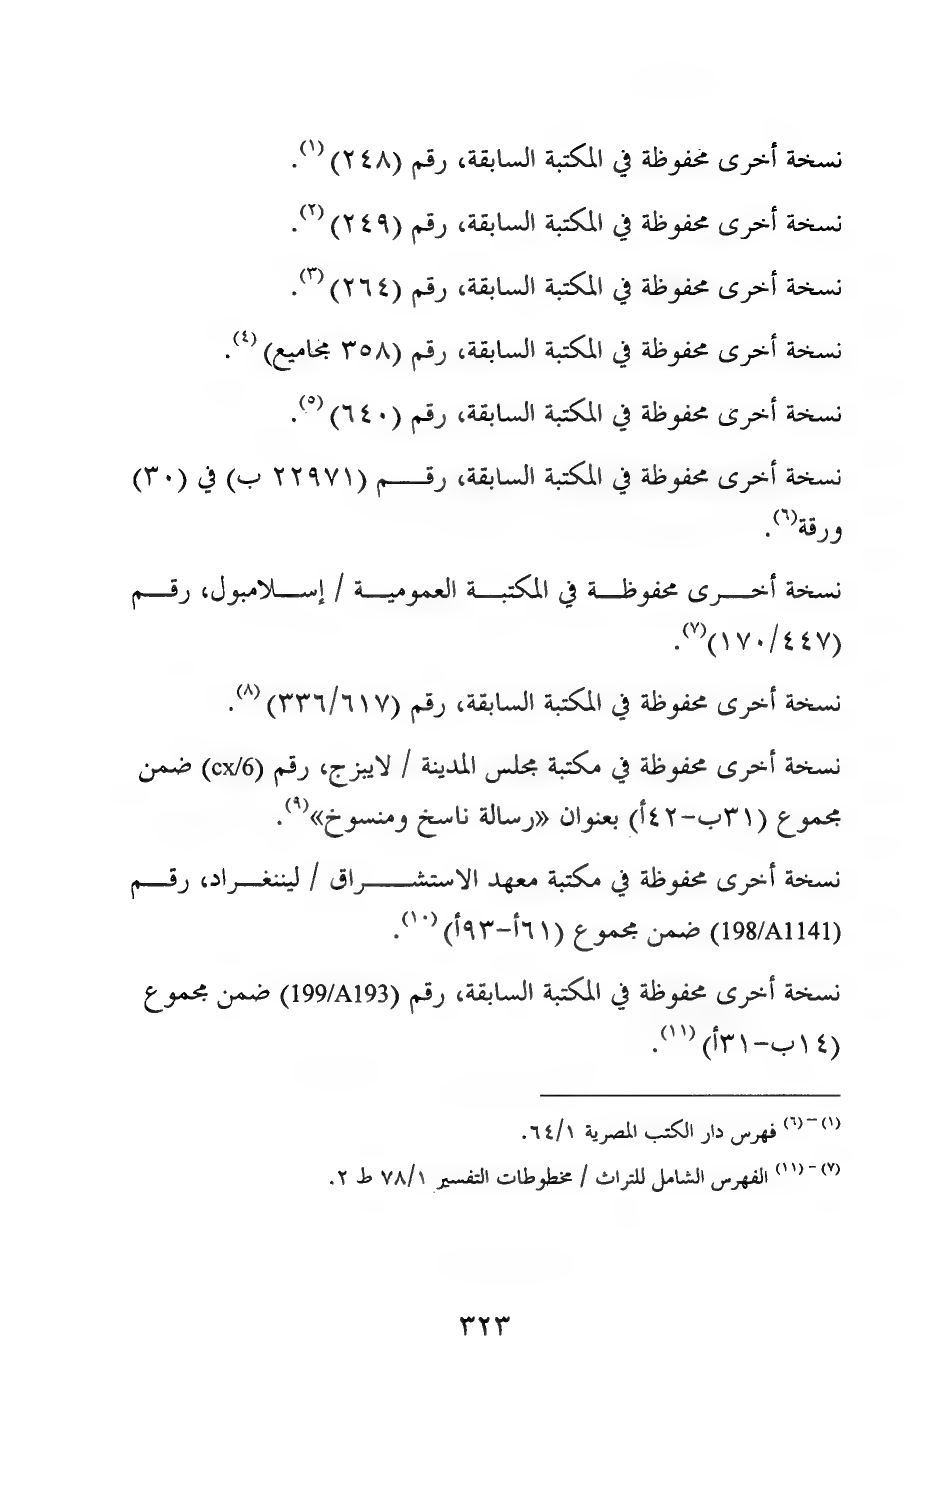 نسخة أخرى محفوظة في المكتبة السابقة، رقم (٢٤٨)(١).
نسخة أخرى محفوظة في المكتبة السابقة، رقم (٢٤٩)(٢).
نسخة أخرى محفوظة في المكتبة السابقة، رقم (٢٦٤)(٣).
نسخة أخرى محفوظة في المكتبة السابقة، رقم (٣٥٨ مجاميع)(٤).
نسخة أخرى محفوظة في المكتبة السابقة، رقم (٦٤٠)(٥).
نسخة أخرى محفوظة في المكتبة السابقة، رقـــم (٢٢٩٧١ ب) في (٣٠)
ورقة(٦).
نسخة أخـــرى محفوظـــة في المكتبـــة العموميـــة / إســـلامبول، رقـــم
(١٧٠/٤٤٧)(٧).
نسخة أخرى محفوظة في المكتبة السابقة، رقم (٣٣٦/٦١٧)(٨).
نسخة أخرى محفوظة في مكتبة مجلس المدينة / لايبزج، رقم (cx/6) ضمن
مجموع (٣١ب-٤٢أ) بعنوان «رسالة ناسخ ومنسوخ»(٩).
نسخة أخرى محفوظة في مكتبة معهد الاستشـــراق / ليننغـــراد، رقـــم
(198/A1141) ضمن مجموع (٦١أ-٩٣أ)(١٠).
نسخة أخرى محفوظة في المكتبة السابقة، رقم (199/A193) ضمن مجموع
(١٤ب-٣١أ)(١١).
(١)-(٦) فهرس دار الكتب المصرية ٦٤/١.
(٧)-(١١) الفهرس الشامل للتراث / مخطوطات التفسير ٧٨/١ ط ٢.
٣٢٣